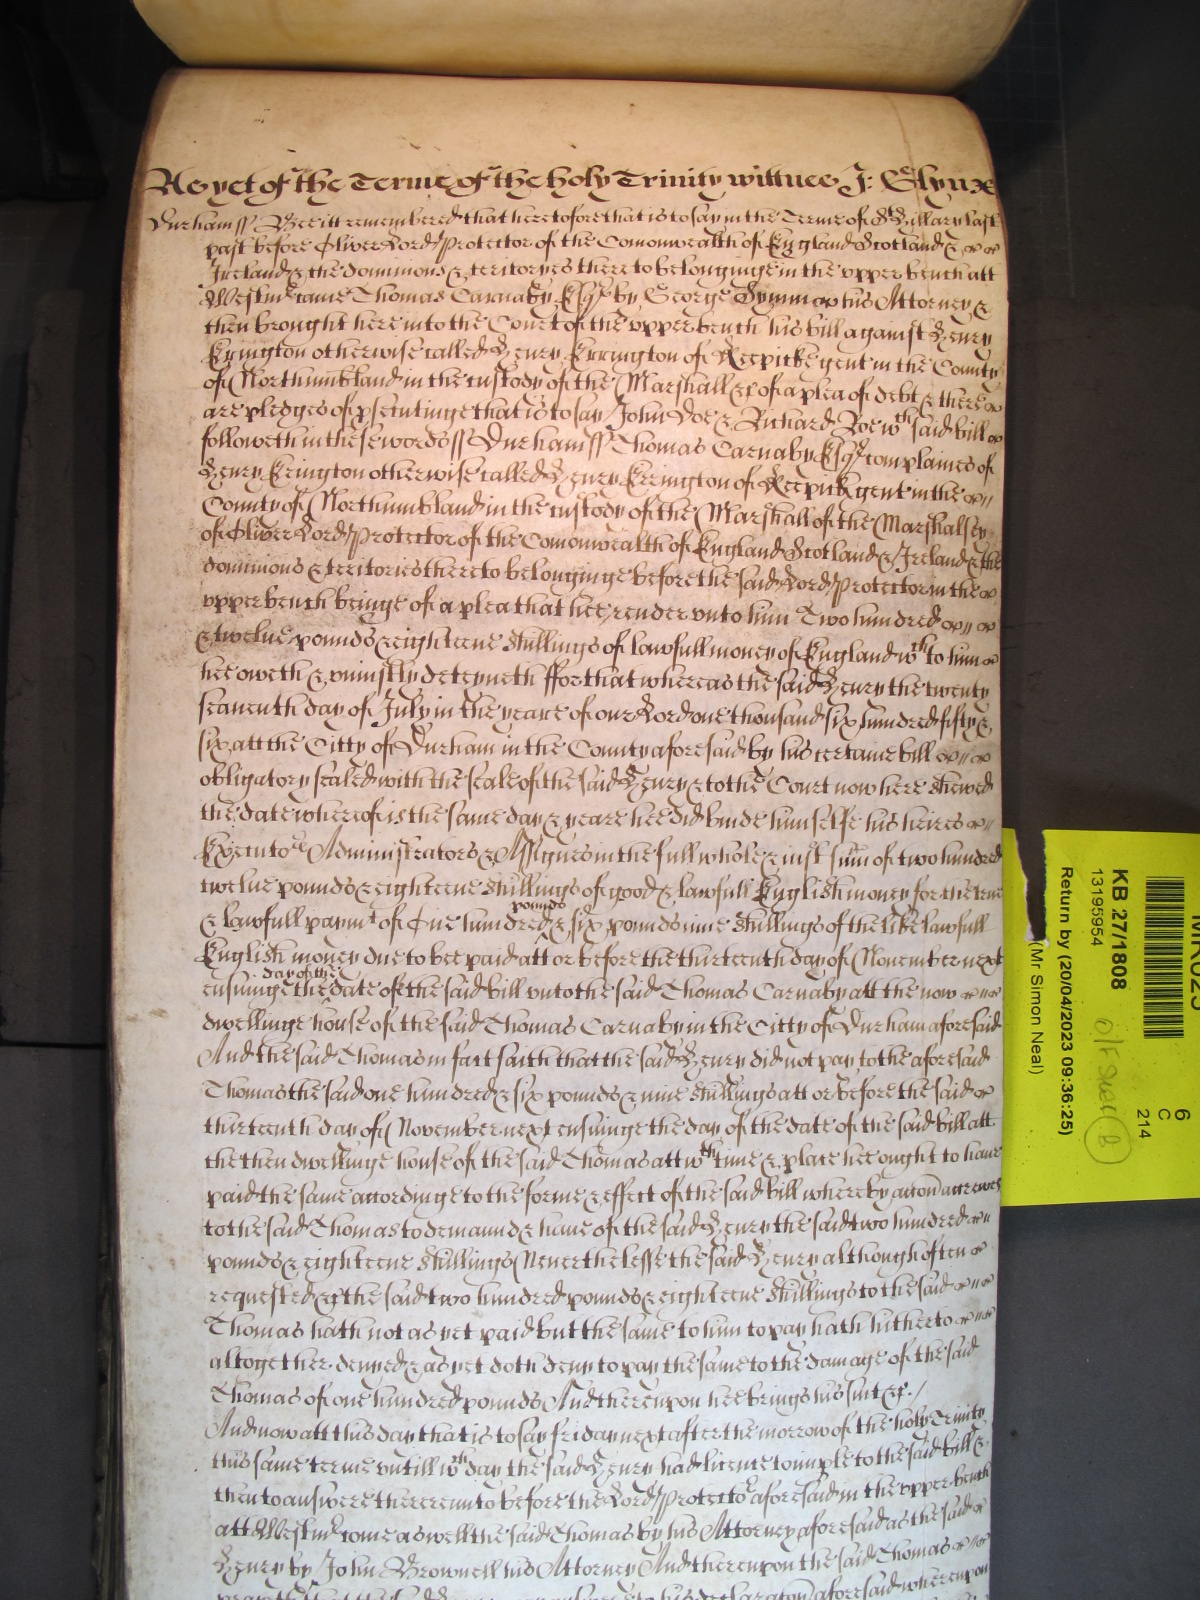 As yet of the Terme of the holy Trinity wittnes J: Glynne
Durham ss Bee itt remembered that heretofore that is to say in the Terme of St Hillary last
past before Oliver Lord Protector of the Comonwealth of England Scotland &
Ireland & the dominions & territoryes thereto belonginge in the upper bench att
Westmr came Thomas Carnaby Esqr by George Tymm his Attorney &
then brought here into the Court of the upper bench his bill against Henry
Errington otherwise called Henry Errington of gent in the County
of Northumbland in the custody of the Marshall &c of a plea of debt & there
are pledges of psecutinge that is to say John Doe & Richard Roe wch said bill
followeth in these words ss Durham ss Thomas Carnaby Esqr complaines of
Henry Erington otherwise called Henry Errington of gent in the
County of Northumbland in the custody of the Marshall of the Marshalsey
of Oliver Lord Protector of the Comonwealth of England Scotland & Ireland & the
dominions & territories thereto belonginge before the said Lord Protector in the
upper bench beinge of a plea that hee render unto him Two hundred
& twelve pounds & eighteene shillings of lawfull money of England wch to him
hee oweth & uniustly deteyneth ffor that whereas the said Henry the twenty
seaventh day of July in the yeare of our Lord one thousand six hundred fifty &
six att the Citty of Durham in the County aforesaid by his certaine bill
obligatory sealed with the seale of the said Henry & to the Court now here shewed
the date whereof is the same day & yeare hee did binde himselfe his heires
Executors Administrators & Assignes in the full whole & iust sum of two hundred
twelve pounds & eighteene shillings of good & lawfull English money for the true
& lawfull paymt of One hundred pounds & six pounds nine shillings of the like lawfull
English money due to bee paid att or before the thirteenth day of November next
ensuinge the day of the date of the said bill unto the said Thomas Carnaby att the now
dwellinge house of the said Thomas Carnaby in the Citty of Durham aforesaid
And the said Thomas in fact saith that the said Henry did not pay to the aforesaid
Thomas the said one hundred & six pounds & nine shillings att or before the said
thirteenth day of November next ensuinge the day of the date of the said bill att
the then dwellinge house of the said Thomas att wch time & place hee ought to have
paid the same accordinge to the forme & effect of the said bill whereby accon accrewes
to the said Thomas to demaund & have of the said Henry the said two hundred
pounds & eighteene shillings Neverthelesse the said Henry although often
requested &c the said two hundred pounds & eighteene shillings to the said
Thomas hath not as yet paid but the same to him to pay hath hitherto
altogether denyed & as yet doth deny to pay the same to the damage of the said
Thomas of one hundred pounds And thereupon hee brings his suit &c.
And now att this day that is to say friday next after the morrow of the holy Trinity
this same terme untill wch day the said Henry had licence to imple to the said bill &
then to answere thereunto before the Lord Protector aforesaid in the upper bench
att Westmr come aswell the said Thomas by his Attorney aforesaid as the said
Henry by John Brownell his Attorney And thereupon the said Thomas
his declaraton aforesaid whereupon
KB 27/1808
13195954
Return by (20/04/2023 09:36:25)
(Mr Simon Neal)
6
C
214